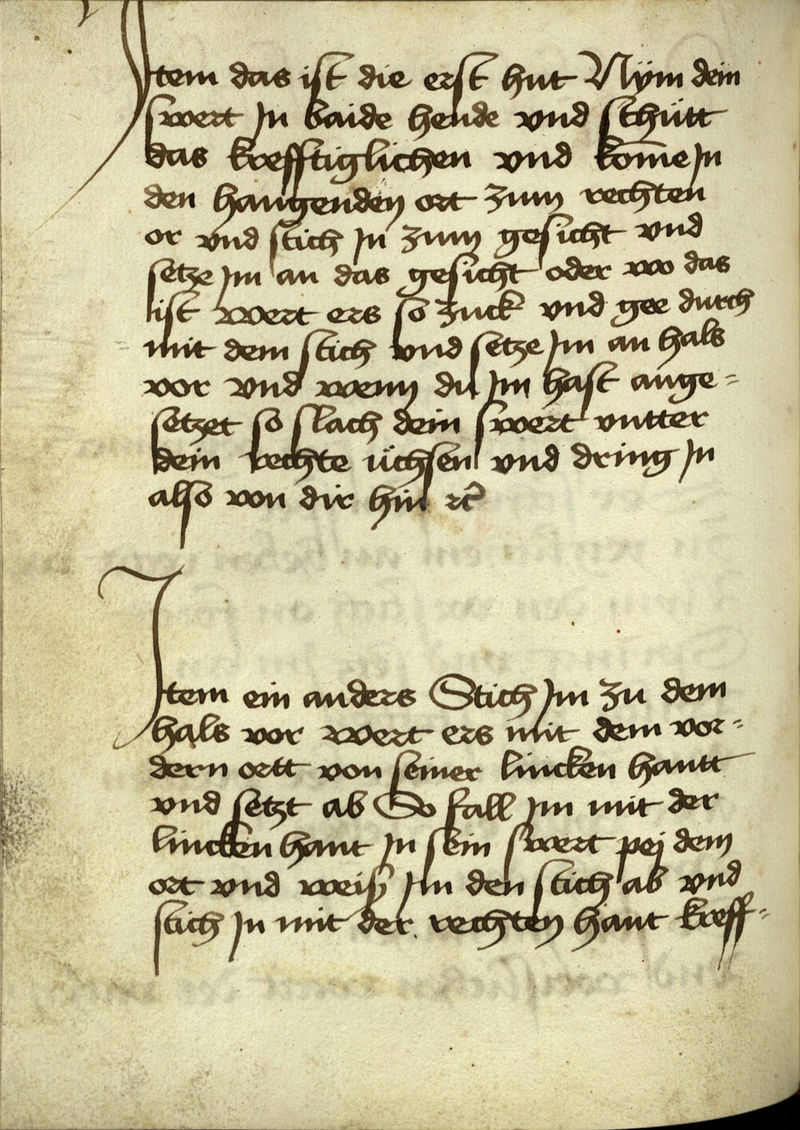 Item das ist die erst hut Nÿm dein
swert In baide hende vnd schütt
das krefftiglichen vnd kom̄e In
den hangenden ort zum rechten
or vnd stich In zum gesicht vnd
setze Im an das gesicht oder wo das
ist wert ers so zuck vnd gee durch
mit dem stich vnd setze Im an hals
vor vnd wenn du Im hast ange=
setzet so slach dein swert vntter
dein rechte üchsen vnd dring In
also von dir hin ⁊c̄
Item ein anders Stich Im zu dem
hals vor wert ers mit dem vor=
dern ortt von seiner lincken hantt
vnd setzt ab So fall Im mit der
lincken hant In sein swert pej dem
ort vnd weiß Im den stich ab vnd
stich In mit der rechten hant kreff=